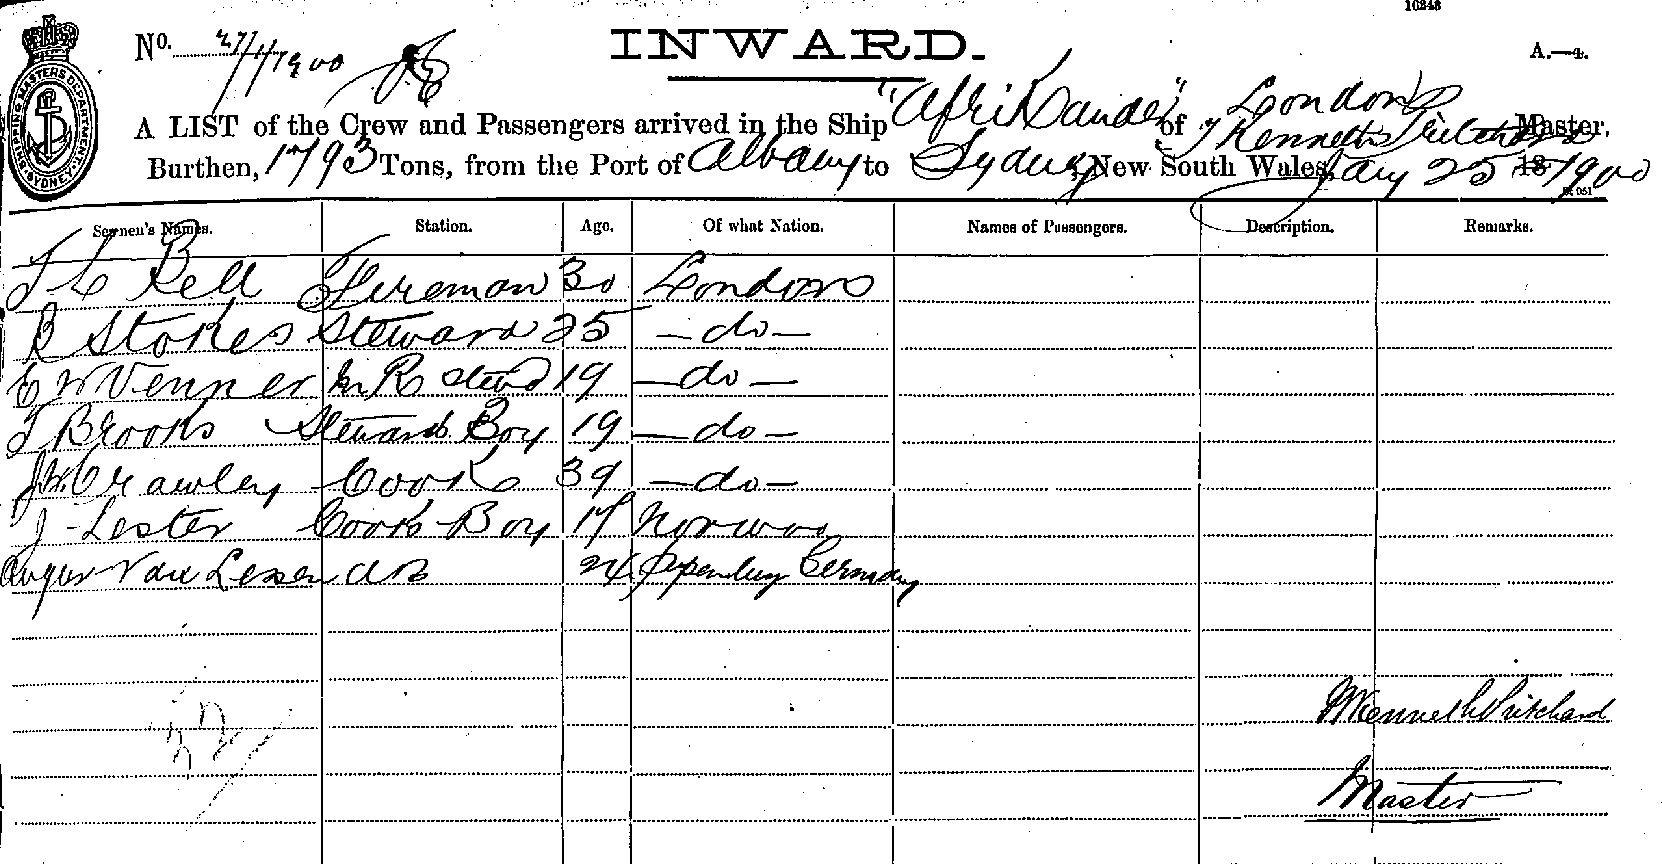 10248
No. 27/1/1900
INWARD.
A.—4.
SHIPPING MASTERS DEPARTMENT SYDNEY
A LIST of the Crew and Passengers arrived in the Ship "Afrikander" of London Master,
Burthen, 1793 Tons, from the Port of Albany to Sydney, New South Wales, Jany 25 18 1900
Seamen's Names. Station. Age. Of what Nation. Names of Passengers. Description. Remarks.
Bell Fireman 30 London
B Stokes Steward 25 — do —
E W Venner Stewd 19 — do —
Brooks Stewards Boy 19 — do —
J W Crawley Cook 39 — do —
J Lester Cooks Boy 17
Van AB 24 Germany
Kenneth Pritchard
Master